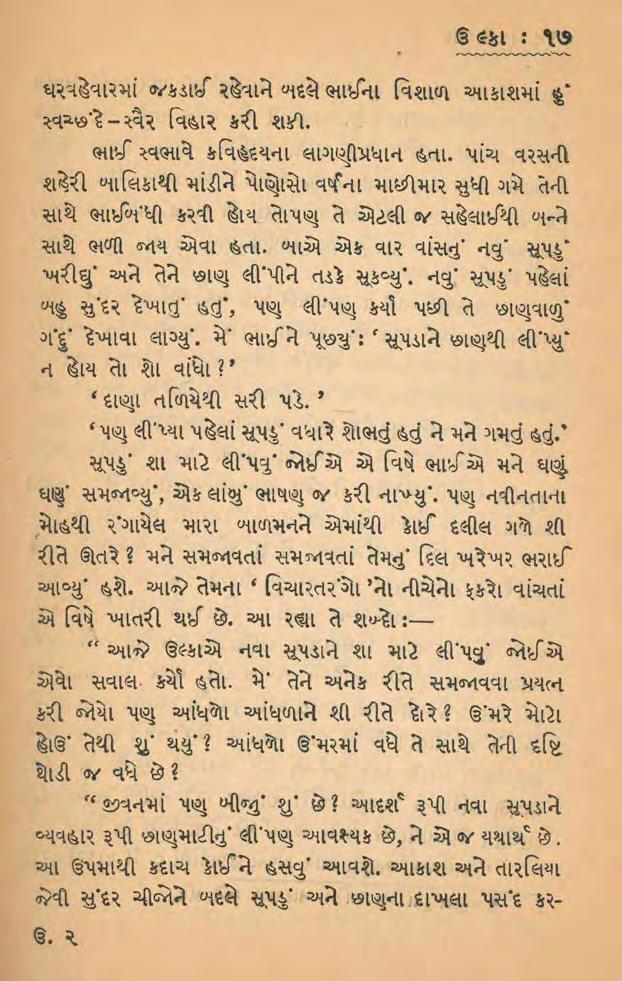 ઉલ્કા : ૧૭
ઘરવહેવારમાં જકડાઈ રહેવાને બદલે ભાઈના વિશાળ આકાશમાં હું
સ્વચ્છંદે–સ્વૈર વિહાર કરી શકી.
ભાઈ સ્વભાવે કવિહૃદયના લાગણીપ્રધાન હતા. પાંચ વરસની
શહેરી બાલિકાથી માંડીને પોણોસો વર્ષના માછીમાર સુધી ગમે તેની
સાથે ભાઈબંધી કરવી હોય તોપણ તે એટલી જ સહેલાઈથી બન્ને
સાથે ભળી જાય એવા હતા. બાએ એક વાર વાંસનું નવું સૂપડું
ખરીદ્યું અને તેને છાણ લીંપીને તડકે સૂકવ્યું. નવું સૂપડું પહેલાં
બહુ સુંદર દેખાતું હતું, પણ લીંપણ કર્યા પછી તે છાણવાળું
ગંદું દેખાવા લાગ્યું. મેં ભાઈને પૂછ્યું: ‘સૂપડાને છાણથી લીંપ્યું
ન હોય તો શો વાંધો?’
‘દાણા તળિયેથી સરી પડે.’
‘પણ લીંપ્યા પહેલાં સૂપડું વધારે શોભતું હતું ને મને ગમતું હતું.’
સૂપડું શા માટે લીંપવું જોઈએ એ વિષે ભાઈએ મને ઘણું
ઘણું સમજાવ્યું, એક લાંબું ભાષણ જ કરી નાખ્યું. પણ નવીનતાના
મોહથી રંગાયેલ મારા બાળમનને એમાંથી કોઈ દલીલ ગળે શી
રીતે ઊતરે? મને સમજાવતાં સમજાવતાં તેમનું દિલ ખરેખર ભરાઈ
આવ્યું હશે. આજે તેમના ‘વિચારતરંગો’નો નીચેનો ફકરો વાંચતાં
એ વિષે ખાતરી થઈ છે. આ રહ્યા તે શબ્દો:—
“આજે ઉલ્કાએ નવા સૂપડાને શા માટે લીંપવું જોઈએ
એવો સવાલ કર્યો હતો. મેં તેને અનેક રીતે સમજાવવા પ્રયત્ન
કરી જોયો પણ આંધળો આંધળાને શી રીતે દોરે? ઉંમરે મોટો
હોઉં તેથી શું થયું? આંધળો ઉંમરમાં વધે તે સાથે તેની દૃષ્ટિ
થોડી જ વધે છે?
“જીવનમાં પણ બીજું શું છે? આદર્શ રૂપી નવા સૂપડાને
વ્યવહાર રૂપી છાણમાટીનું લીંપણ આવશ્યક છે, ને એ જ યથાર્થ છે.
આ ઉપમાથી કદાચ કોઈને હસવું આવશે. આકાશ અને તારલિયા
જેવી સુંદર ચીજોને બદલે સૂપડું અને છાણના દાખલા પસંદ કર-
ઉ. ૨